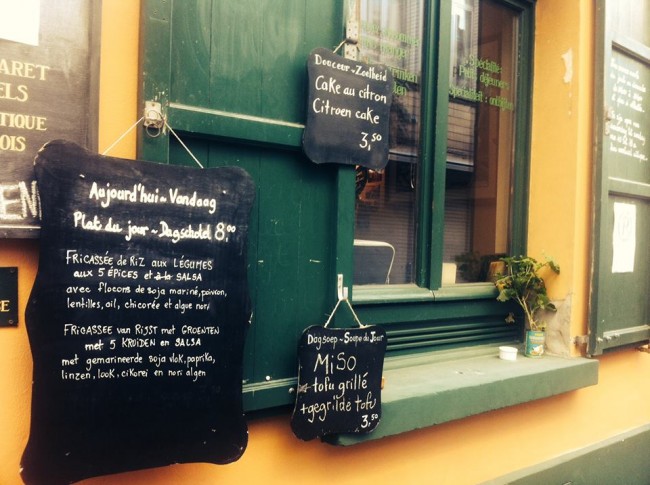 ARET
ELS
TIQUE
OIS
EN
E
Aujourd'hui ~ Vandaag
Plat du jour ~ Dagschotel 8,00
FRICASSÉE de RIZ AUX LÉGUMES
AUX 5 ÉPICES et à la SALSA
avec flocons de soja mariné, poivron,
lentilles, ail, chicorée et algue nori
FRICASSEE van RIJST met GROENTEN
met 5 KRUIDEN en SALSA
met gemarineerde soja vlok, paprika,
linzen, look, cikorei en nori algen
Douceur ~ Zoetheid
Cake au citron
Citroen cake
3,50
Dagsoep ~ Soupe du Jour
MiSo
+ tofu grillé
+ gegrilde tofu
3,50
Spécialité:
Petit déjeuners
Specialiteit: ontbijten